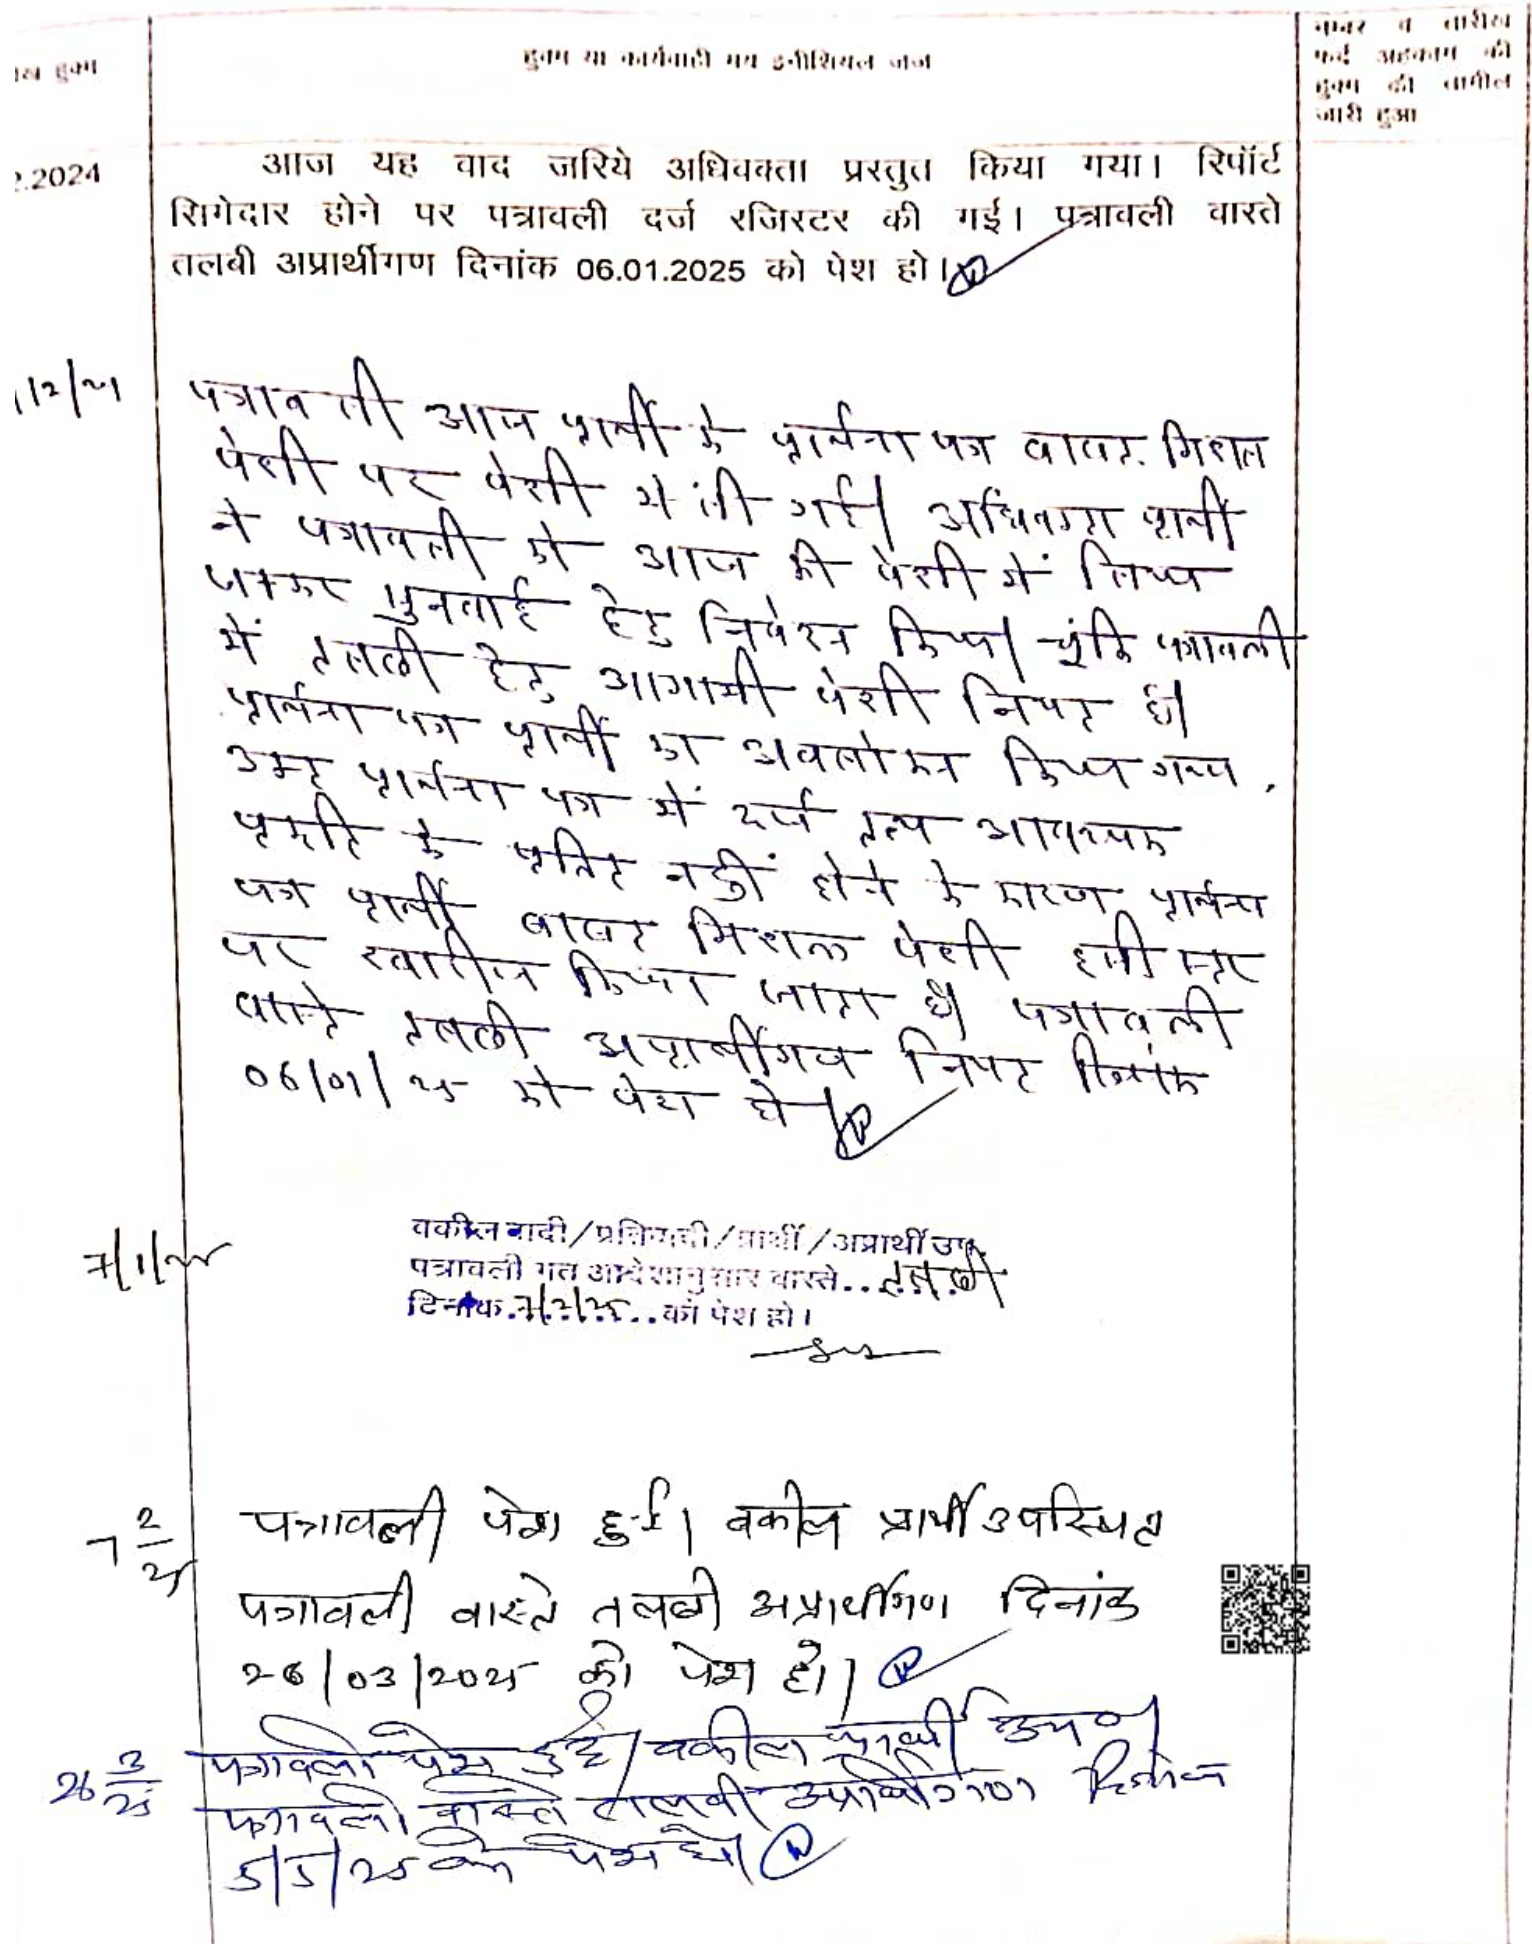 हुक्म या कार्यवाही मय इनीशियल जज
नम्बर व तारीख
फर्द अहकाम की
हुक्म की तामील
जारी हुआ
हुक्म
.2024
आज यह वाद जरिये अधिवक्ता प्रस्तुत किया गया। रिपॉर्ट
सिगेदार होने पर पत्रावली दर्ज रजिस्टर की गई। पत्रावली वास्ते
तलबी अप्रार्थीगण दिनांक 06.01.2025 को पेश हो।
पत्रावली आज प्रार्थी के प्रार्थना पत्र बाबत मिशल
पेशी पर पेशी में ली गई। अधिवक्ता प्रार्थी
ने पत्रावली को आज की पेशी में लिया
जाकर सुनवाई हेतु निवेदन किया। चूंकि पत्रावली
में तलबी हेतु आगामी पेशी नियत है।
प्रार्थना पत्र प्रार्थी का अवलोकन किया गया,
उक्त प्रार्थना पत्र में दर्ज तथ्य आवश्यक
प्रकृति के प्रतीत नहीं होने के कारण प्रार्थना
पत्र प्रार्थी बाबत मिशल पेशी इसी स्तर
पर खारीज किया जाता है। पत्रावली
वास्ते तलबी अप्रार्थीगण नियत दिनांक
06/01/25 को पेश हो।
7/1/25
वकील वादी/प्रतिवादी/प्रार्थी/अप्रार्थी उप.
पत्रावली गत आदेशानुसार वास्ते..तलबी
दिनांक.7/2/25...को पेश हो।
7 2/25
पत्रावली पेश हुई। वकील प्रार्थी उपस्थित
पत्रावली वास्ते तलबी अप्रार्थीगण दिनांक
26/03/2025 को पेश हो।
26 3/25
पत्रावली पेश हुई। वकील प्रार्थी उप०।
पत्रावली वास्ते तलबी अप्रार्थीगण दिनांक
5/5/25 को पेश हो।